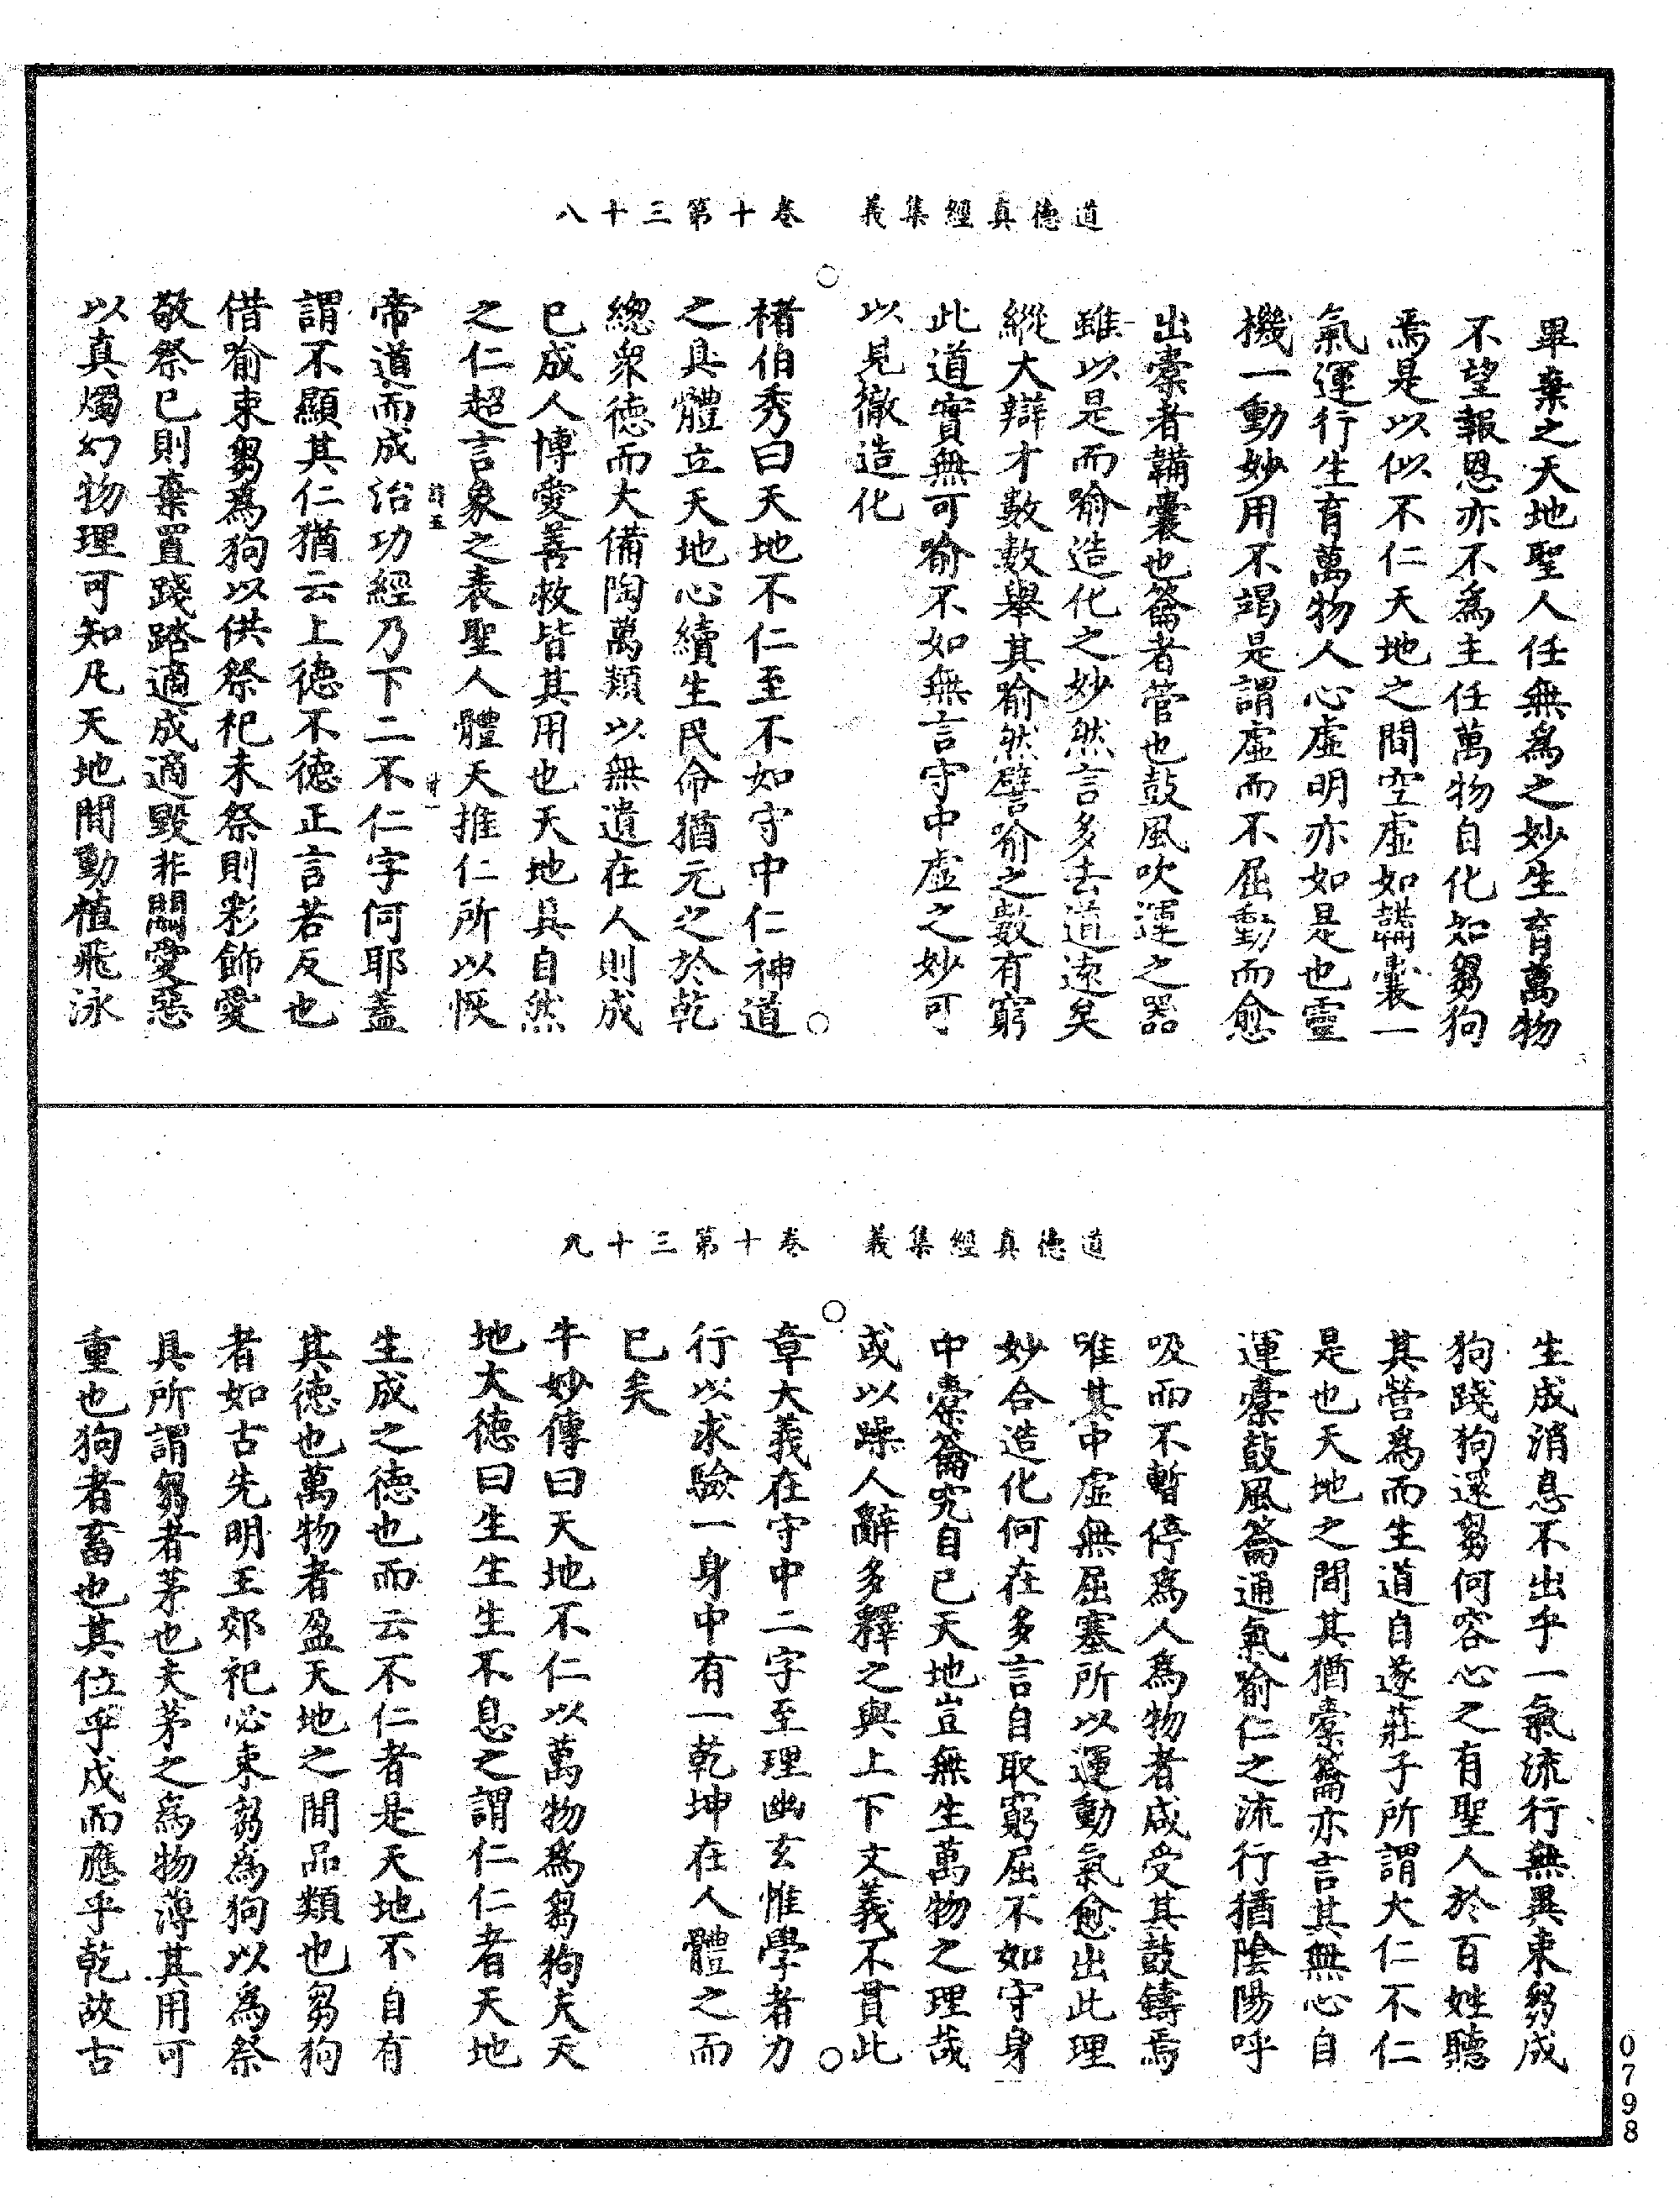 道德真經集義　卷十第三十八
畢棄之天地聖人任無為之妙生育萬物
不望報恩亦不為主任萬物自化如芻狗
焉是以似不仁天地之間空虛如鞲囊一
氣運行生育萬物人心虛明亦如是也靈
機一動妙用不竭是謂虛而不屈動而愈
出橐者鞲囊也籥者管也鼓風吹運之器
雖以是而喻造化之妙然言多去道遠矣
縱大辯才數數舉其喻然譬喻之數有窮
此道實無可喻不如無言守中虛之妙可
以見徹造化
○
○
楮伯秀曰天地不仁至不如守中仁神道
之具體立天地心續生民命猶元之於乾
總衆德而大備陶萬類以無遺在人則成
已成人博愛善救皆其用也天地具自然
之仁超言象之表聖人體天推仁所以恢
帝道而成治功經乃下二不仁字何耶蓋
謂不顯其仁猶云上德不德正言若反也
借喻束芻為狗以供祭祀未祭則彩飾愛
敬祭已則棄置踐踏適成適毀非關愛惡
以真燭幻物理可知凡天地間動植飛泳
道德真經集義　卷十第三十九
生成消息不出乎一氣流行無異束芻成
狗踐狗還芻何容心之有聖人於百姓聽
其營為而生道自遂莊子所謂大仁不仁
是也天地之間其猶橐籥亦言其無心自
運橐鼓風籥通氣喻仁之流行猶陰陽呼
吸而不暫停為人為物者咸受其鼓鑄焉
唯其中虛無屈塞所以運動氣愈出此理
妙合造化何在多言自取窮屈不如守身
中橐籥究自已天地豈無生萬物之理哉
或以躁人辭多釋之與上下文義不貫此
○
○
章大義在守中二字至理幽玄惟學者力
行以求驗一身中有一乾坤在人體之而
已矣
牛妙傳曰天地不仁以萬物為芻狗夫天
地大德曰生生生不息之謂仁仁者天地
生成之德也而云不仁者是天地不自有
其德也萬物者盈天地之間品類也芻狗
者如古先明王郊祀必束芻為狗以為祭
具所謂芻者茅也夫茅之為物薄其用可
重也狗者畜也其位乎戌而應乎乾故古
0798